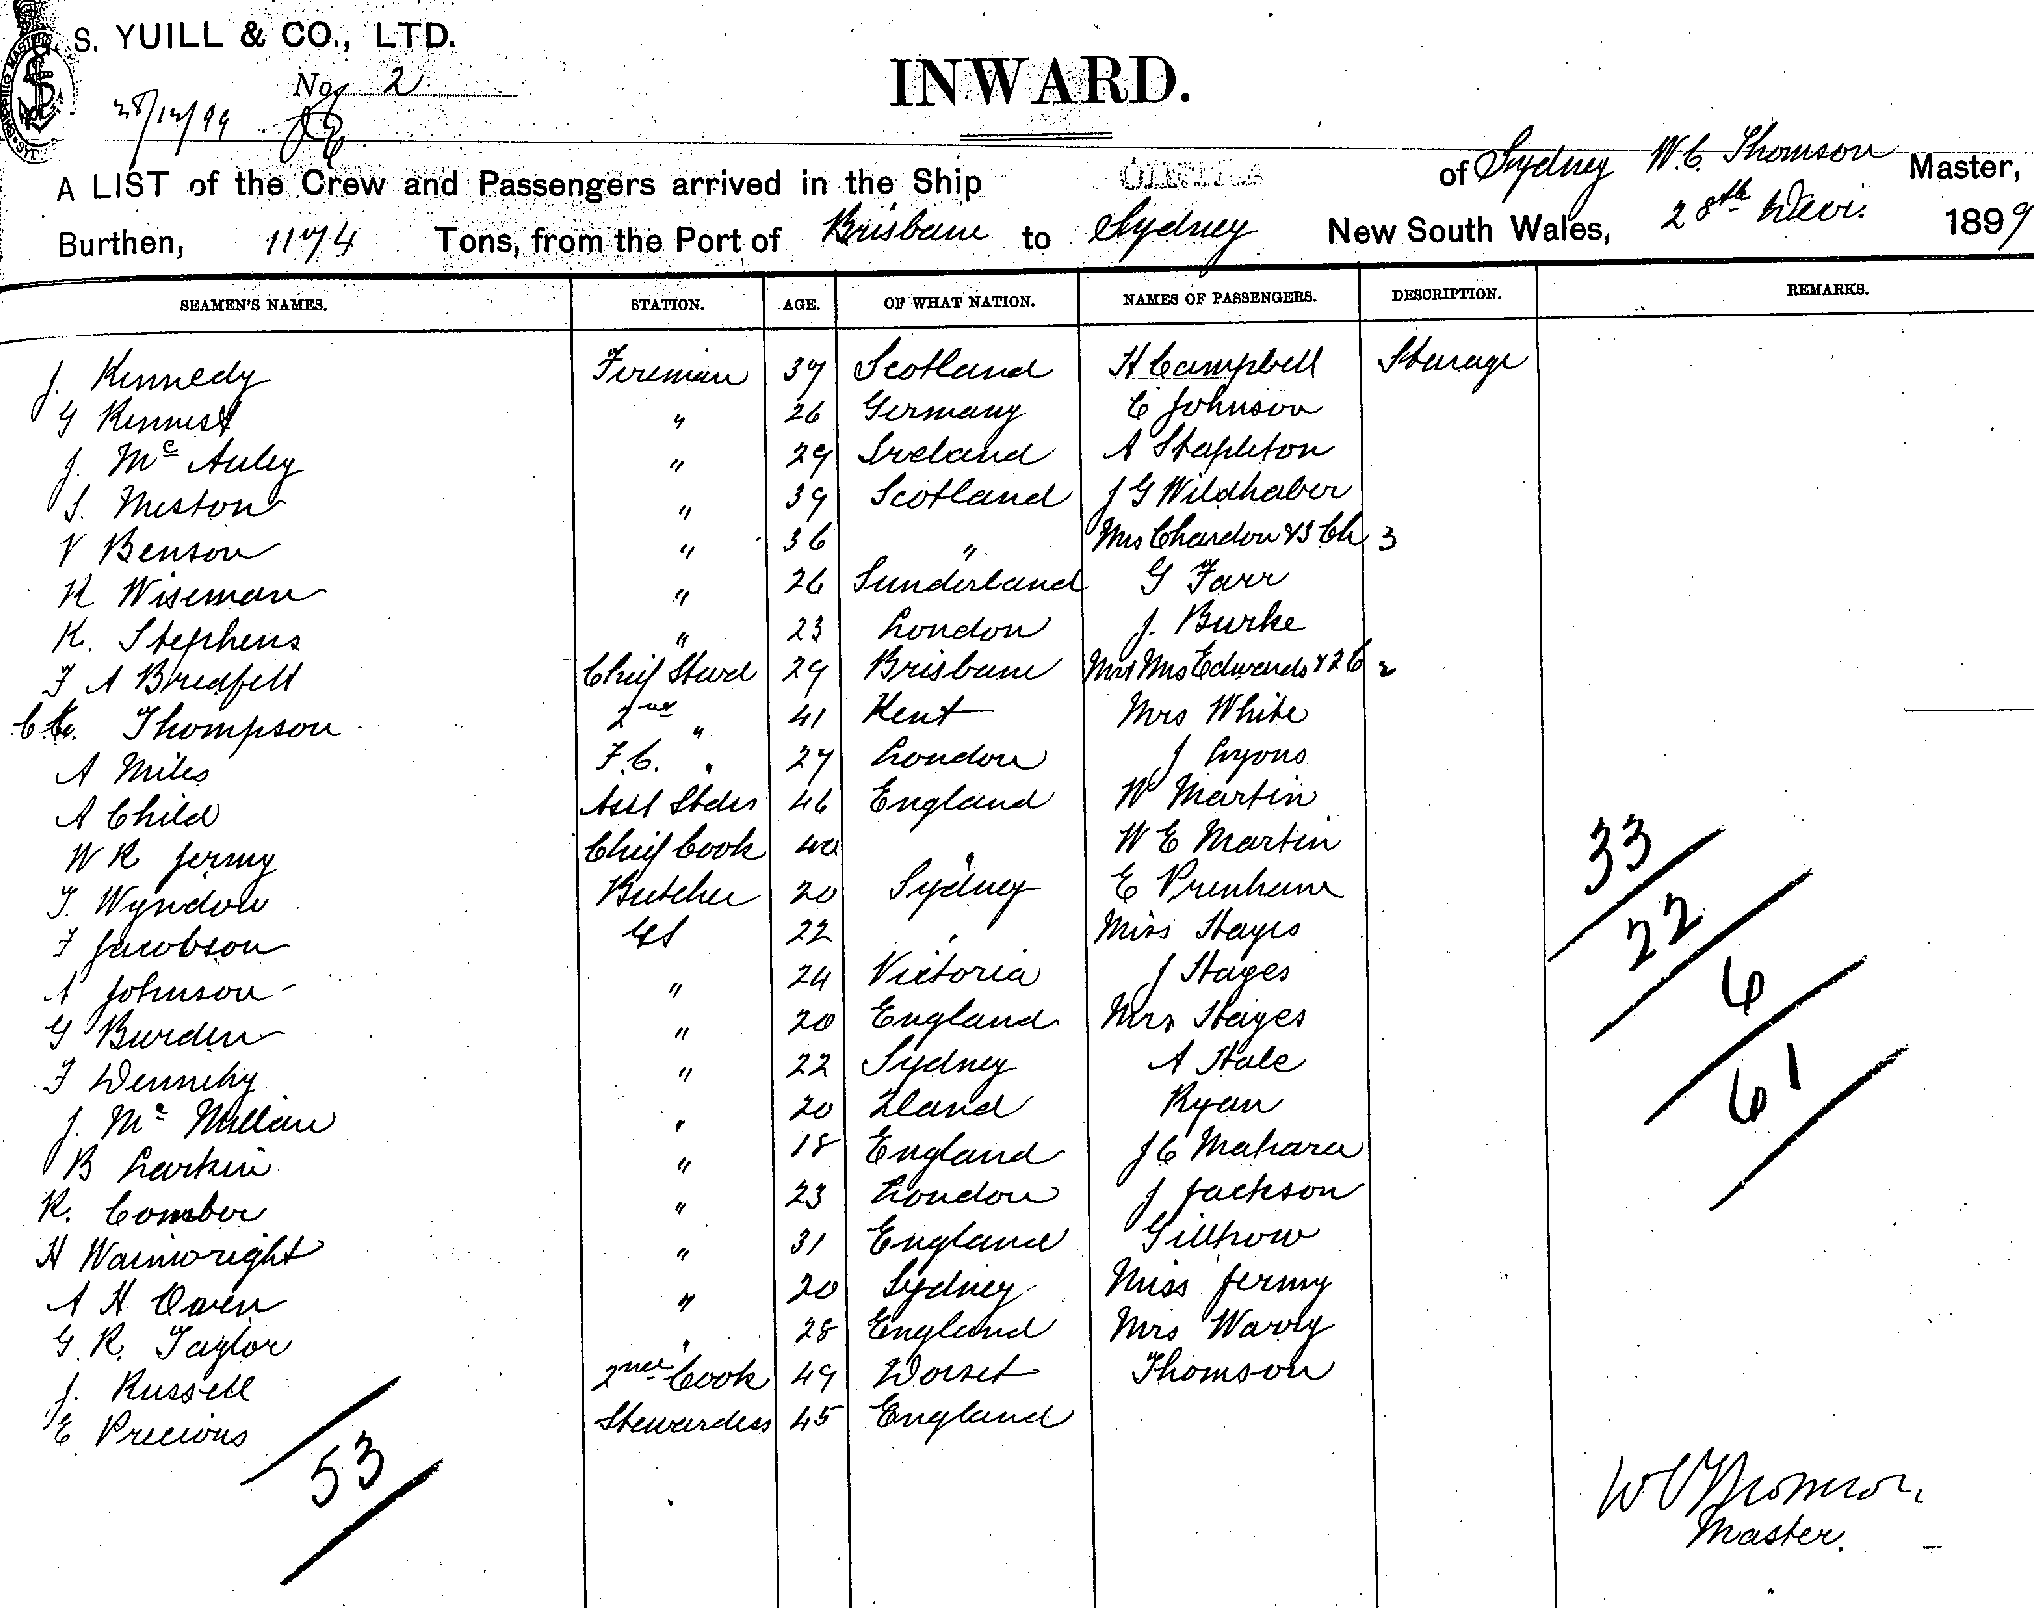 S. YUILL & CO., LTD.
No 2
28/12/99
INWARD.
A LIST of the Crew and Passengers arrived in the Ship of Sydney W. C. Thomson Master,
Burthen, 1174 Tons, from the Port of Brisbane to Sydney New South Wales, 28th Decr. 1899
SEAMEN'S NAMES. STATION. AGE. OF WHAT NATION. NAMES OF PASSENGERS. DESCRIPTION. REMARKS.
J. Kennedy Fireman 37 Scotland H Campbell Steerage
G " 26 Germany C Johnson
J. Mc Auley " 29 Ireland A Stapleton
S. Meston " 39 Scotland J G Wildhaber
V Benson " 36 " Mrs Chardon & 3 Ch 3
R Wiseman " 26 Sunderland G Farr
R. Stephens " 23 London J. Burke
F A Bredfelt Chief Stwd 29 Brisbane Mr & Mrs Edwards & 2 C 2
Thompson 2nd " 41 Kent Mrs White
A Miles F.C. " 27 London J Lyons
A Child Asst Stdss 46 England W Martin
W R Jermy Chief Cook 40 " W E Martin
T. Wyndow Butcher 20 Sydney E Prenhane
F Jacobson GS 22 " Miss Hayes
A Johnson " 24 Victoria J Hayes
G Burden " 20 England Mrs Hayes
T Dennehy " 22 Sydney A Hale
J. Mc Millan " 20 Zland Ryan
B Larkin " 18 England J C Mahara
R. Comber " 23 London J Jackson
H Wainwright " 31 England Gilltrow
A H Owen " 20 Sydney Miss Jermy
G. R. Taylor " 28 England Mrs Warry
J. Russell 2nd Cook 49 Dorset Thomson
E Precious Stewardess 45 England
53
33
22
6
61
W C Thomson
Master.